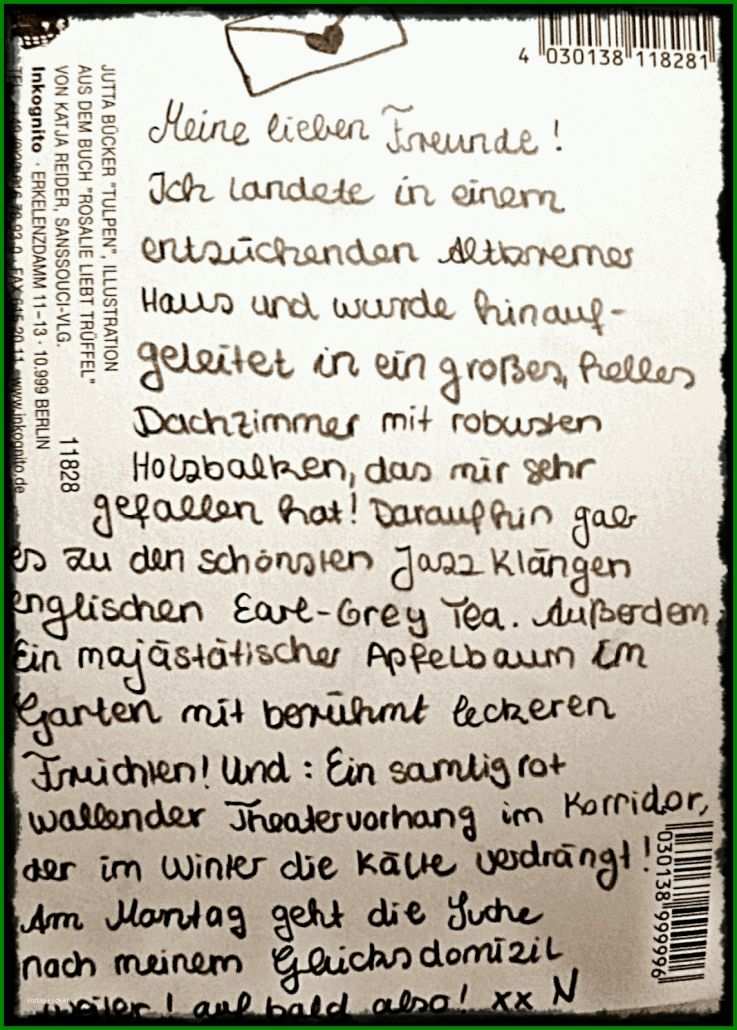 4 030138 118281
JUTTA BÜCKER "TULPEN", ILLUSTRATION
AUS DEM BUCH "ROSALIE LIEBT TRÜFFEL"
VON KATJA REIDER, SANSSOUCI-VLG.
Inkognito · ERKELENZDAMM 11–13 · 10.999 BERLIN
www.inkognito.de
11828
Meine lieben Freunde!
Ich landete in einem
entzückenden Altbremer
Haus und wurde hinauf-
geleitet in ein großes, helles
Dachzimmer mit robusten
Holzbalken, das mir sehr
gefallen hat! Daraufhin gab
es zu den schönsten Jazz Klängen
englischen Earl-Grey Tea. Außerdem
Ein majästätischer Apfelbaum im
Garten mit berühmt leckeren
Früchten! Und: Ein samtig rot
wallender Theatervorhang im Korridor,
der im Winter die Kälte verdrängt!
Am Montag geht die Suche
nach meinem Glücksdomizil
weiter! auf bald also! xx N
030138 999996